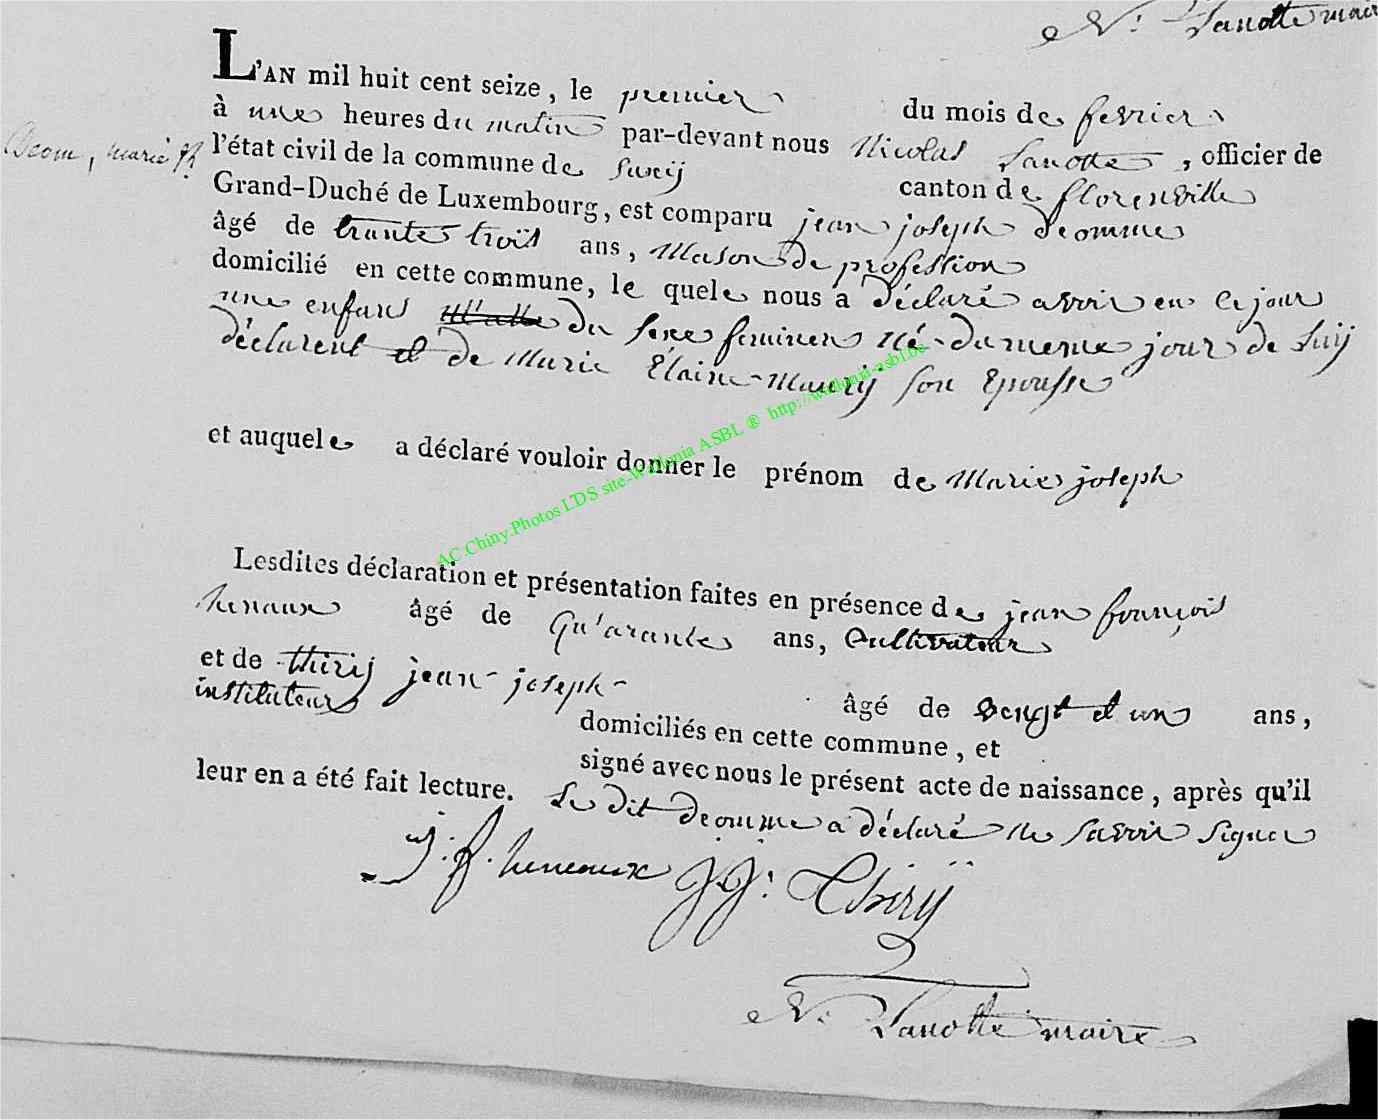 N: Lanotte maire
L'AN mil huit cent seize, le premier du mois de fevrier
à une heures du matin par-devant nous Nicolas Lanotte, officier de
Decom, marie
l'état civil de la commune de Suxij canton de florenville
Grand-Duché de Luxembourg, est comparu jean joseph Deomme
âgé de trante trois ans, Mason de profession
domicilié en cette commune, le quele nous a déclaré avoir en ce jour
une enfans du sexe feminen né du meme jour de luij
déclarent et de Marie Élaine Mauxij son Epousse
et auquele a déclaré vouloir donner le prénom de Marie joseph
AC.Chiny.Photos LDS site-Wallonia ASBL ® http://wallonia-asbl.be
Lesdites déclaration et présentation faites en présence de jean françois
henaux âgé de Qu'arante ans, Cultivateur
et de thirij jean-joseph- âgé de vengt et un ans,
instituteur domiciliés en cette commune, et
signé avec nous le présent acte de naissance, après qu'il
leur en a été fait lecture. Le dit Deomme a déclaré ne savoir signer
J. f. heneaux J.J: Thirÿ
N: Lanotte maire